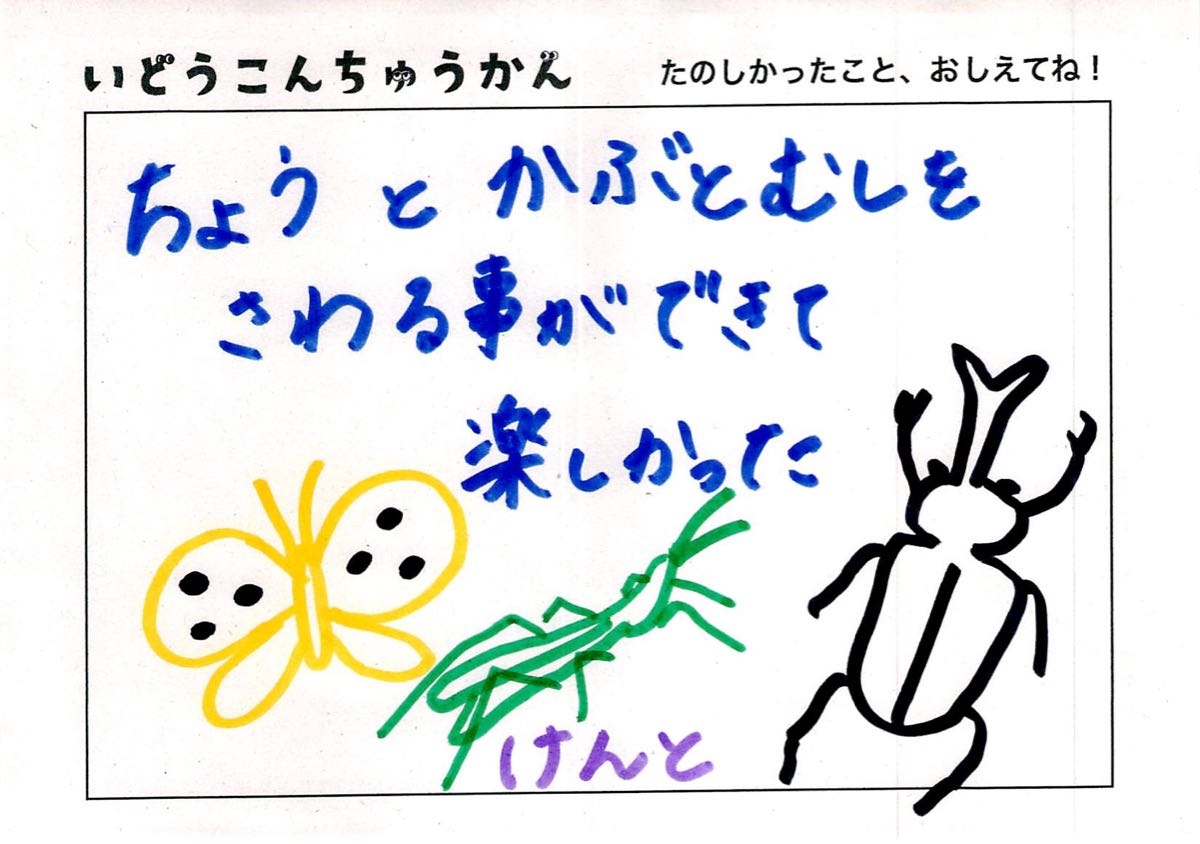 いどうこんちゅうかん
たのしかったこと、おしえてね！
ちょうとかぶとむしを
さわる事ができて
楽しかった
けんと